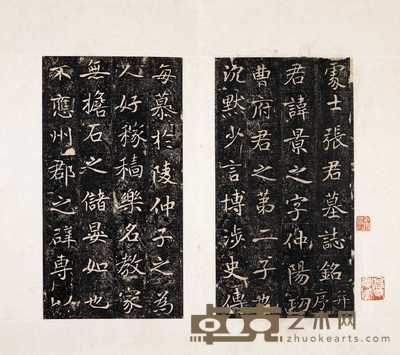 處士張君墓誌銘并序
君諱景之字仲陽功
曹府君之第二子也
沉默少言博涉史傳
每慕於陵仲子之為
人好稼穡樂名教家
無擔石之儲晏如也
不應州郡之辟專以
卓克艺术网
www.zhuokearts.com